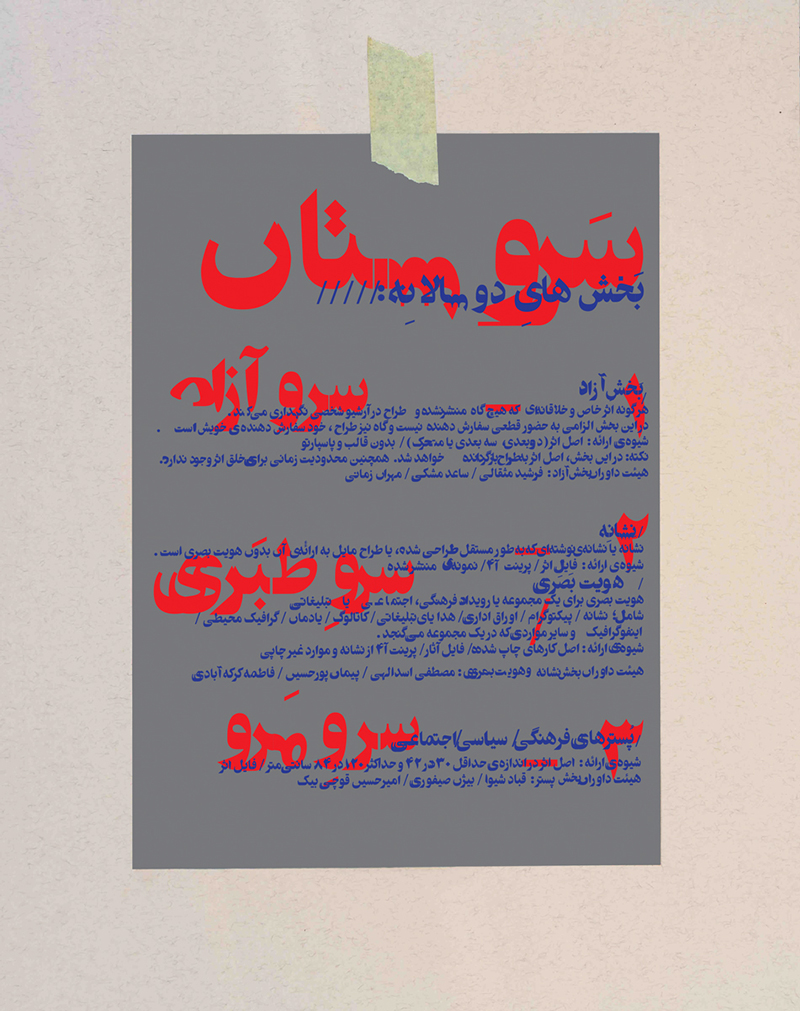 سَروِستان
بَخش هایِ دوسالانِه: /////
۱
سرو آزاد
/بخش آزاد
هرگونه اثر خاص و خلاقانه‌ای که هیچ گاه منتشر نشده و طراح در آرشیو شخصی نگهداری می‌کند.
در این بخش الزامی به حضور قطعی سفارش دهنده نیست و گاه نیز طراح ، خود سفارش دهنده‌ی خویش است .
شیوه‌ی ارائه : اصل اثر (دوبعدی سه بعدی یا متحرک) / بدون قالب و پاسپارتو
نکته: در این بخش، اصل اثر به طراح بازگردانده خواهد شد. همچنین محدودیت زمانی برای خلق اثر وجود ندارد.
هیئت داوران بخش آزاد: فرشید مثقالی / ساعد مشکی / مهران زمانی
۲
سروِ طبَری
/نشانه
نشانه یا نشانه‌ی نوشته‌ای که به طور مستقل طراحی شده، یا طراح مایل به ارائه‌ی آن بدون هویت بصری است .
شیوه‌ی ارائه : فایل اثر/ پرینت آ۴/ نمونه‌ی منتشر شده
/ هویت بصَری
هویت بصری برای یک مجموعه یا رویداد فرهنگی، اجتماعی یا تبلیغاتی
شامل: نشانه / پیکتوگرام / اوراق اداری/ هدایای تبلیغاتی/ کاتالوگ / یادمان / گرافیک محیطی /
اینفوگرافیک و سایر مواردی که در یک مجموعه می‌گنجد .
شیوه‌ی ارائه : اصل کارهای چاپ شده/ فایل آثار/ پرینت آ۴ از نشانه و موارد غیر چاپی
هیئت داوران بخش نشانه وهویت بصری : مصطفی اسدالهی / پیمان پورحسین / فاطمه کرکه آبادی
۳
سرو مَرو
/پُسترهای فرهنگی/ سیاسی/اجتماعی
شیوه‌ی ارائه : اصل اثر در اندازه‌ی حداقل ۳۰ در ۴۲ و حداکثر ۱۲۰ در ۸۴ سانتی‌متر/ فایل اثر
هیئت داوران بخش پستر: قباد شیوا / بیژن صیفوری / امیرحسین قوچی بیک